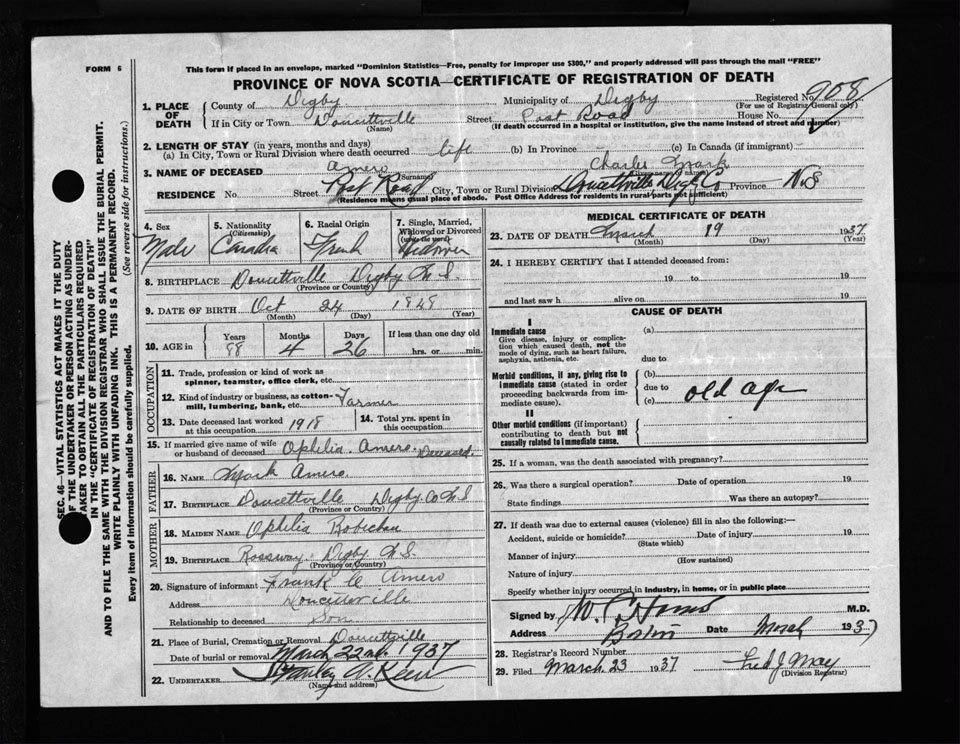 FORM 6
This form if placed in an envelope, marked "Dominion Statistics—Free, penalty for improper use $300," and properly addressed will pass through the mail "FREE"
PROVINCE OF NOVA SCOTIA—CERTIFICATE OF REGISTRATION OF DEATH
Registered No. 908
(For use of Registrar General only)
1. PLACE OF DEATH
County of Digby Municipality of Digby
If in City or Town Doucettville Street Post Road House No.
(Name) (If death occurred in a hospital or institution, give the name instead of street and number)
2. LENGTH OF STAY (in years, months and days)
(a) In City, Town or Rural Division where death occurred life (b) In Province (c) In Canada (if immigrant) -
3. NAME OF DECEASED Amero Charles Mark
(Surname) (Given name or names)
RESIDENCE No. Street Post Road City, Town or Rural Division Doucettville, Digby Co Province N.S
(Residence means usual place of abode. Post Office Address for residents in rural parts not sufficient)
4. Sex Male
5. Nationality (Citizenship) Canadian
6. Racial Origin French
7. Single, Married, Widowed or Divorced (write the word) Widower
8. BIRTHPLACE Doucettville Digby N.S.
(Province or Country)
9. DATE OF BIRTH Oct 24 1848
(Month) (Day) (Year)
10. AGE in Years 88 Months 4 Days 26 If less than one day old hrs. or min.
OCCUPATION
11. Trade, profession or kind of work as spinner, teamster, office clerk, etc.
12. Kind of industry or business, as cotton-mill, lumbering, bank, etc. Farmer
13. Date deceased last worked at this occupation 1918
14. Total yrs. spent in this occupation
15. If married give name of wife or husband of deceased Ophilia Amero. Deceased.
FATHER
16. NAME Mark Amero.
17. BIRTHPLACE Doucettville Digby Co N S
(Province or Country)
MOTHER
18. MAIDEN NAME Ophilia Robichau
19. BIRTHPLACE Rossway Digby N.S.
(Province or Country)
20. Signature of informant Frank C Amero
Address Doucettville
Relationship to deceased Son
21. Place of Burial, Cremation or Removal Doucettville
Date of burial or removal March 22nd 1937
22. UNDERTAKER Stanley A.
(Name and address)
MEDICAL CERTIFICATE OF DEATH
23. DATE OF DEATH March 19 1937
(Month) (Day) (Year)
24. I HEREBY CERTIFY that I attended deceased from:
19 to 19
and last saw h alive on 19
CAUSE OF DEATH
I
Immediate cause
Give disease, injury or complication which caused death, not the mode of dying, such as heart failure, asphyxia, asthenia, etc.
(a)
due to
Morbid conditions, if any, giving rise to immediate cause (stated in order proceeding backwards from immediate cause).
(b)
due to
(c) old age
II
Other morbid conditions (if important) contributing to death but not causally related to immediate cause.
25. If a woman, was the death associated with pregnancy?
26. Was there a surgical operation? Date of operation 19
State findings Was there an autopsy?
27. If death was due to external causes (violence) fill in also the following:—
Accident, suicide or homicide? Date of injury 19
(State which)
Manner of injury
(How sustained)
Nature of injury
Specify whether injury occurred in industry, in home, or in public place
Signed by M.D.
Address Date March 1937
28. Registrar's Record Number
29. Filed March 23 1937 Fred J May
(Division Registrar)
SEC. 46—VITAL STATISTICS ACT MAKES IT THE DUTY
OF THE UNDERTAKER OR PERSON ACTING AS UNDER-
TAKER TO OBTAIN ALL THE PARTICULARS REQUIRED
IN THE "CERTIFICATE OF REGISTRATION OF DEATH"
AND TO FILE THE SAME WITH THE DIVISION REGISTRAR WHO SHALL ISSUE THE BURIAL PERMIT.
WRITE PLAINLY WITH UNFADING INK. THIS IS A PERMANENT RECORD.
Every item of information should be carefully supplied. (See reverse side for instructions.)